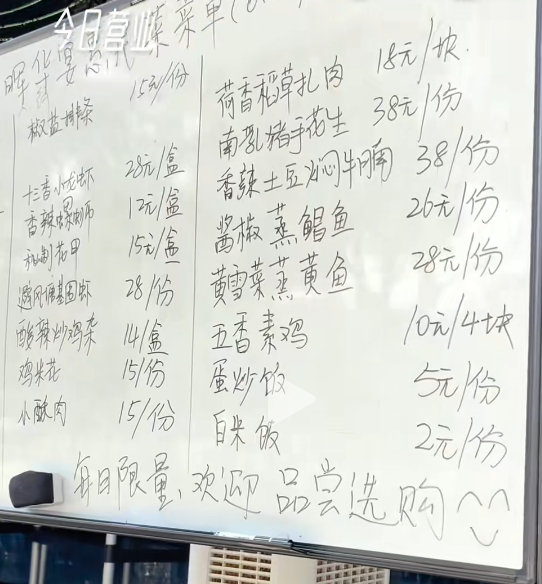 今日营业
菜菜单
15元/份
椒盐排条
十三香小龙虾 28元/盒
香辣螺蛳 12元/盒
私制花甲 15元/盒
避风塘基围虾 28/份
酸辣炒鸡杂 14/盒
鸡米花 15/份
小酥肉 15/份
荷香稻草扎肉 18元/块
南乳猪手花生 38元/份
香辣土豆焖牛腩 38/份
酱椒蒸鲳鱼 26元/份
黄雪菜蒸黄鱼 28元/份
五香素鸡 10元/4块
蛋炒饭 5元/份
白米饭 2元/份
每日限量,欢迎品尝选购